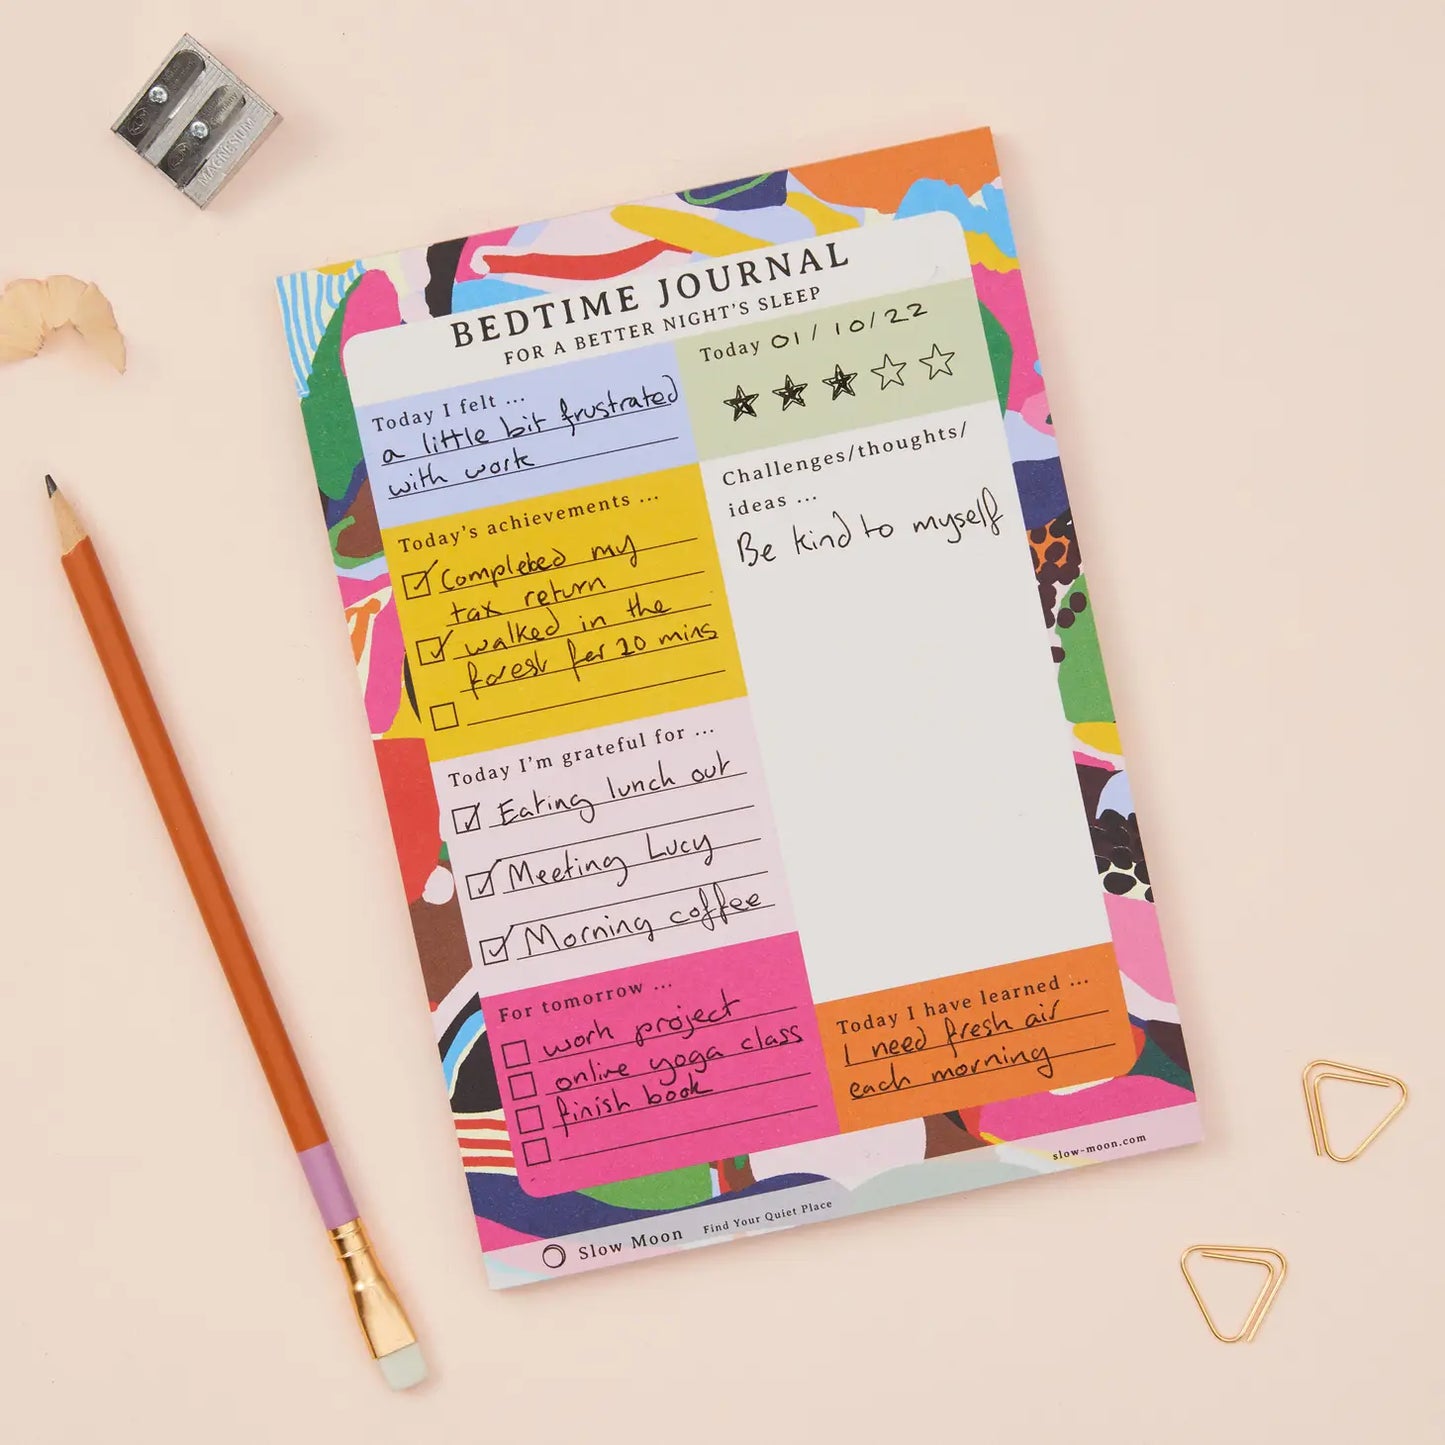 BEDTIME JOURNAL
FOR A BETTER NIGHT'S SLEEP
Today I felt ...
a little bit frustrated
with work
Today 01/10/22
Today's achievements ...
Completed my
tax return
walked in the
forest for 20 mins
Challenges/thoughts/
ideas ...
Be kind to myself
Today I'm grateful for ...
Eating lunch out
Meeting Lucy
Morning coffee
For tomorrow ...
work project
online yoga class
finish book
Today I have learned ...
I need fresh air
each morning
slow-moon.com
Slow Moon Find Your Quiet Place
MAGNESIUM